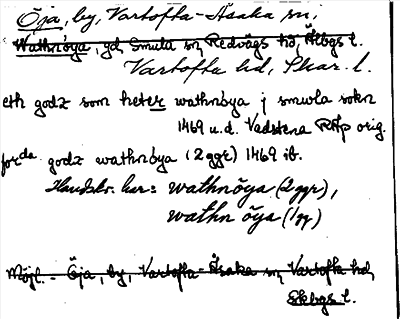 Öja, by, Vartofta-Åsaka sn,
Wathnöya, gd, Smula sn, Redvägs hd, Älvbgs l.
Vartofta hd, Skar. l.
eth godz som heter wathnöya j smwla sokn
1469 u.d. Vadstena RAp orig.
forda godz wathnöya (2 ggr) 1469 ib.
Handskr. har: wathnöya (2 ggr),
wathn öya (1 gg)
Möjl. = Öja, by, Vartofta-Åsaka sn, Vartofta hd,
Skbgs l.